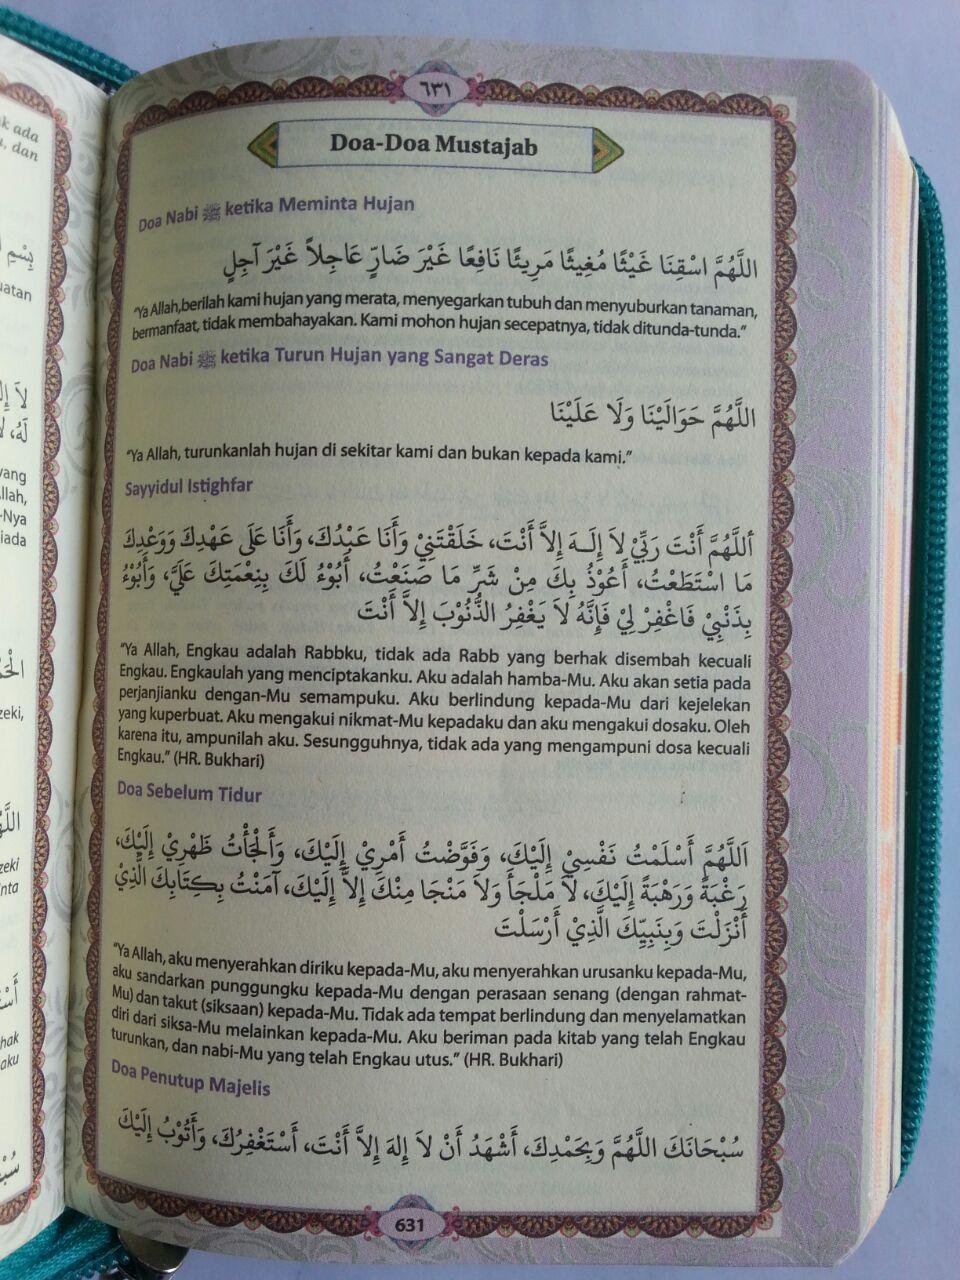 ٦٣١
Doa-Doa Mustajab
Doa Nabi ﷺ ketika Meminta Hujan
اللَّهُمَّ اسْقِنَا غَيْثًا مُغِيثًا مَرِيئًا نَافِعًا غَيْرَ ضَارٍّ عَاجِلاً غَيْرَ آجِلٍ
"Ya Allah,berilah kami hujan yang merata, menyegarkan tubuh dan menyuburkan tanaman,
bermanfaat, tidak membahayakan. Kami mohon hujan secepatnya, tidak ditunda-tunda."
Doa Nabi ﷺ ketika Turun Hujan yang Sangat Deras
اللَّهُمَّ حَوَالَيْنَا وَلَا عَلَيْنَا
"Ya Allah, turunkanlah hujan di sekitar kami dan bukan kepada kami."
Sayyidul Istighfar
أَللَّهُمَّ أَنْتَ رَبِّيْ لاَ إِلَـهَ إِلاَّ أَنْتَ، خَلَقْتَنِيْ وَأَنَا عَبْدُكَ، وَأَنَا عَلَى عَهْدِكَ وَوَعْدِكَ
مَا اسْتَطَعْتُ، أَعُوْذُ بِكَ مِنْ شَرِّ مَا صَنَعْتُ، أَبُوْءُ لَكَ بِنِعْمَتِكَ عَلَيَّ، وَأَبُوْءُ
بِذَنْبِيْ فَاغْفِرْ لِيْ فَإِنَّهُ لَا يَغْفِرُ الذُّنُوْبَ إِلاَّ أَنْتَ
"Ya Allah, Engkau adalah Rabbku, tidak ada Rabb yang berhak disembah kecuali
Engkau. Engkaulah yang menciptakanku. Aku adalah hamba-Mu. Aku akan setia pada
perjanjianku dengan-Mu semampuku. Aku berlindung kepada-Mu dari kejelekan
yang kuperbuat. Aku mengakui nikmat-Mu kepadaku dan aku mengakui dosaku. Oleh
karena itu, ampunilah aku. Sesungguhnya, tidak ada yang mengampuni dosa kecuali
Engkau." (HR. Bukhari)
Doa Sebelum Tidur
اَللَّهُمَّ أَسْلَمْتُ نَفْسِيْ إِلَيْكَ، وَفَوَّضْتُ أَمْرِيْ إِلَيْكَ، وَأَلْجَأْتُ ظَهْرِيْ إِلَيْكَ،
رَغْبَةً وَرَهْبَةً إِلَيْكَ، لَا مَلْجَأَ وَلاَ مَنْجَا مِنْكَ إِلاَّ إِلَيْكَ، آمَنْتُ بِكِتَابِكَ الَّذِيْ
أَنْزَلْتَ وَبِنَبِيِّكَ الَّذِيْ أَرْسَلْتَ
"Ya Allah, aku menyerahkan diriku kepada-Mu, aku menyerahkan urusanku kepada-Mu,
aku sandarkan punggungku kepada-Mu dengan perasaan senang (dengan rahmat-
Mu) dan takut (siksaan) kepada-Mu. Tidak ada tempat berlindung dan menyelamatkan
diri dari siksa-Mu melainkan kepada-Mu. Aku beriman pada kitab yang telah Engkau
turunkan, dan nabi-Mu yang telah Engkau utus." (HR. Bukhari)
Doa Penutup Majelis
سُبْحَانَكَ اللَّهُمَّ وَبِحَمْدِكَ، أَشْهَدُ أَنْ لاَ إِلهَ إِلاَّ أَنْتَ، أَسْتَغْفِرُكَ، وَأَتُوْبُ إِلَيْكَ
631